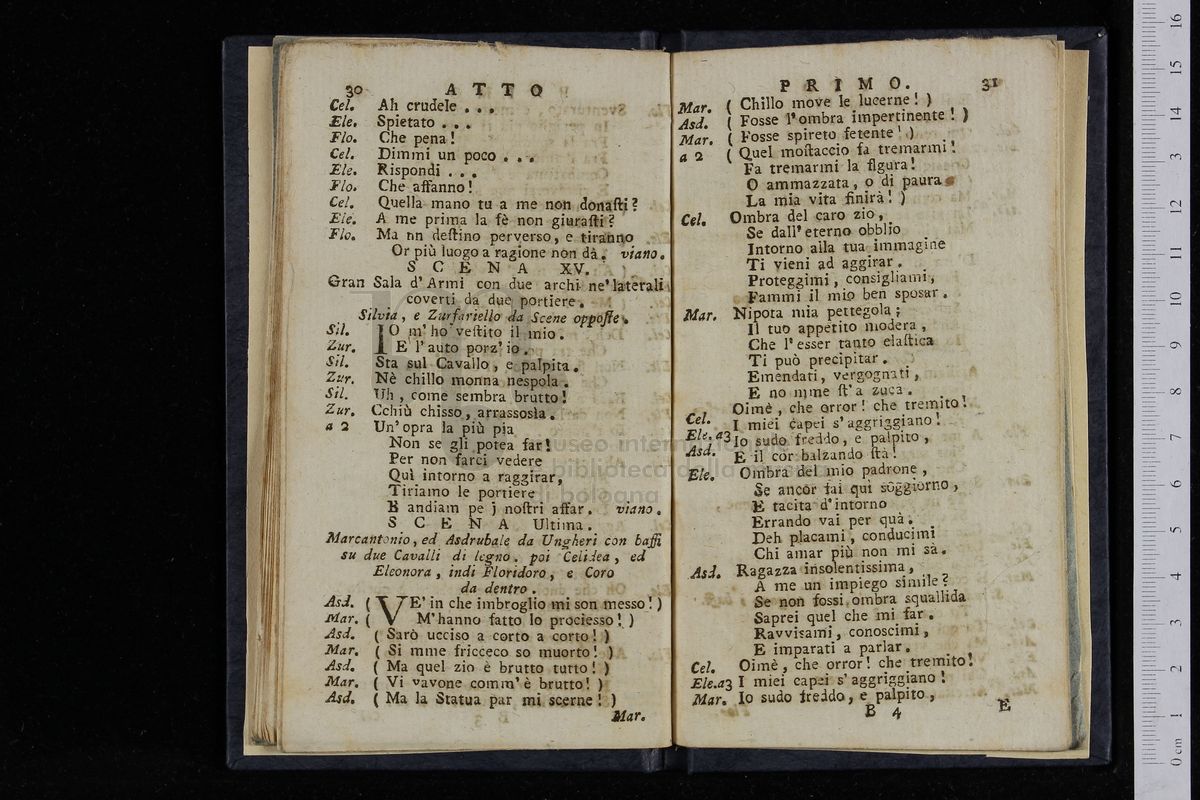 30 ATTO
Cel. Ah crudele . . .
Ele. Spietato . . .
Flo. Che pena!
Cel. Dimmi un poco . . .
Ele. Rispondi . . .
Flo. Che affanno!
Cel. Quella mano tu a me non donaſti?
Ele. A me prima la fè non giuraſti?
Flo. Ma un deſtino perverso, e tiranno
Or più luogo a ragione non dà. viano.
SCENA XV.
Gran Sala d'Armi con due archi ne' laterali
coverti da due portiere.
Silvia, e Zurfariello da Scene oppoſte.
Sil. IO m'ho veſtito il mio.
Zur. E l'auto porz'io.
Sil. Sta sul Cavallo, e palpita.
Zur. Nè chillo monna nespola.
Sil. Uh, come sembra brutto!
Zur. Cchiù chisso, arrassosìa.
a 2 Un'opra la più pia
Non se gli potea far!
Per non farci vedere
Quì intorno a raggirar,
Tiriamo le portiere
E andiam pe j noſtri affar. viano.
SCENA Ultima.
Marcantonio, ed Asdrubale da Ungheri con baffi
su due Cavalli di legno. poi Celidea, ed
Eleonora, indi Floridoro, e Coro
da dentro.
Asd. ( VE' in che imbroglio mi son messo! )
Mar. ( M'hanno fatto lo prociesso! )
Asd. ( Sarò ucciso a corto a corto! )
Mar. ( Si mme fricceco so muorto! )
Asd. ( Ma quel zio è brutto tutto! )
Mar. ( Vi vavone comm' è brutto! )
Asd. ( Ma la Statua par mi scerne! )
Mar.
PRIMO. 31
Mar. ( Chillo move le lucerne! )
Asd. ( Fosse l'ombra impertinente! )
Mar. ( Fosse spireto fetente! )
a 2 ( Quel moſtaccio fa tremarmi!
Fa tremarmi la figura!
O ammazzata, o di paura
La mia vita finirà! )
Cel. Ombra del caro zio,
Se dall'eterno obblio
Intorno alla tua immagine
Ti vieni ad aggirar.
Proteggimi, consigliami,
Fammi il mio ben sposar.
Mar. Nipota mia pettegola;
Il tuo appetito modera,
Che l'esser tanto elaſtica
Ti può precipitar.
Emendati, vergognati,
E no mme ſt'a zuca.
Oimè, che orror! che tremito!
Cel. I miei capei s'aggriggiano!
Ele. a3 Io sudo freddo, e palpito,
Asd. E il cor balzando ſtà!
Ele. Ombra del mio padrone,
Se ancor fai quì soggiorno,
E tacita d'intorno
Errando vai per quà.
Deh placami, conducimi
Chi amar più non mi sà.
Asd. Ragazza insolentissima,
A me un impiego simile?
Se non fossi ombra squallida
Saprei quel che mi far.
Ravvisami, conoscimi,
E imparati a parlar.
Cel. Oimè, che orror! che tremito!
Ele. a3 I miei capei s'aggriggiano!
Mar. Io sudo freddo, e palpito,
B 4 E